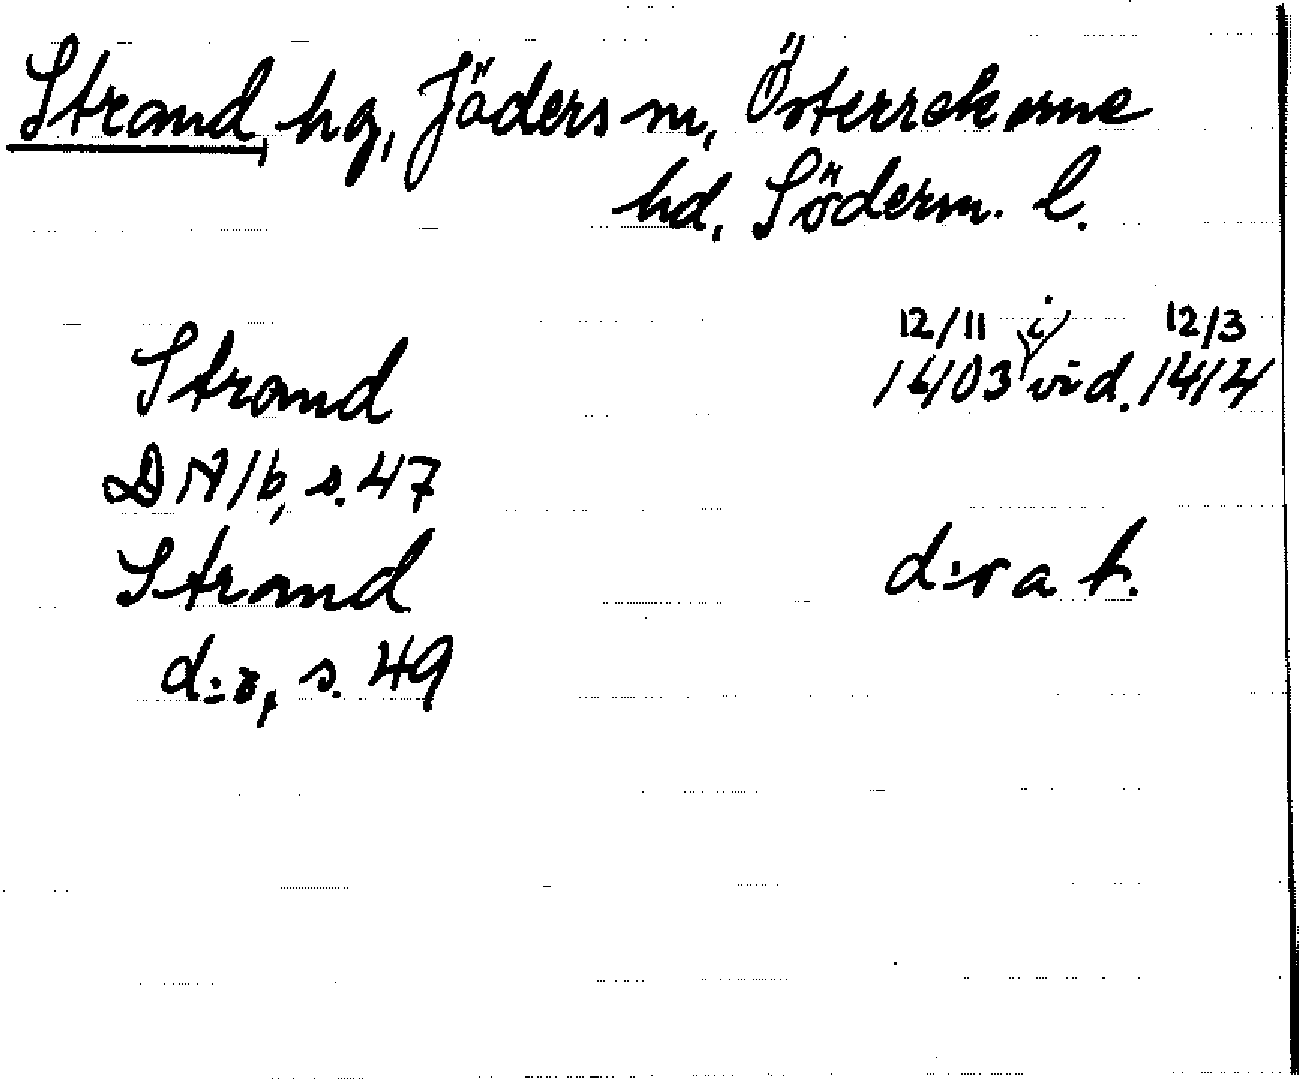 Strand, hg, Jäders sn, Österrekarne
hd, Söderm. l.
Strand 12/11 1403 i vid. 12/3 1414
DN 16, s. 47
Strand d:o a t.
d:o, s. 49